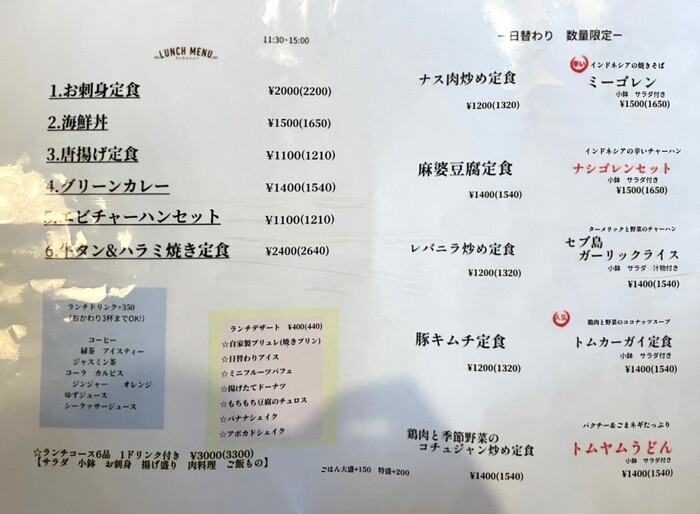 LUNCH MENU
11:30~15:00
1.お刺身定食 ¥2000(2200)
2.海鮮丼 ¥1500(1650)
3.唐揚げ定食 ¥1100(1210)
4.グリーンカレー ¥1400(1540)
5.エビチャーハンセット ¥1100(1210)
6.牛タン&ハラミ焼き定食 ¥2400(2640)
ランチドリンク+350
(おかわり3杯までOK!)
コーヒー
緑茶 アイスティー
ジャスミン茶
コーラ カルピス
ジンジャー オレンジ
ゆずジュース
シークァサージュース
ランチデザート ¥400(440)
☆自家製ブリュレ(焼きプリン)
☆日替わりアイス
☆ミニフルーツパフェ
☆揚げたてドーナツ
☆もちもち豆腐のチュロス
☆バナナシェイク
☆アボカドシェイク
☆ランチコース6品 1ドリンク付き ¥3000(3300)
【サラダ 小鉢 お刺身 揚げ盛り 肉料理 ご飯もの】
ごはん大盛+150 特盛+200
－日替わり 数量限定－
ナス肉炒め定食
¥1200(1320)
麻婆豆腐定食
¥1400(1540)
レバニラ炒め定食
¥1200(1320)
豚キムチ定食
¥1200(1320)
鶏肉と季節野菜の
コチュジャン炒め定食
¥1400(1540)
インドネシアの焼きそば
ミーゴレン
小鉢 サラダ付き
¥1500(1650)
インドネシアの辛いチャーハン
ナシゴレンセット
小鉢 サラダ付き
¥1500(1650)
ターメリックと野菜のチャーハン
セブ島
ガーリックライス
小鉢 サラダ 汁物付き
¥1400(1540)
人気
鶏肉と野菜のココナッツスープ
トムカーガイ定食
小鉢 サラダ付き
¥1400(1540)
パクチー&ごまネギたっぷり
トムヤムうどん
小鉢 サラダ付き
¥1400(1540)